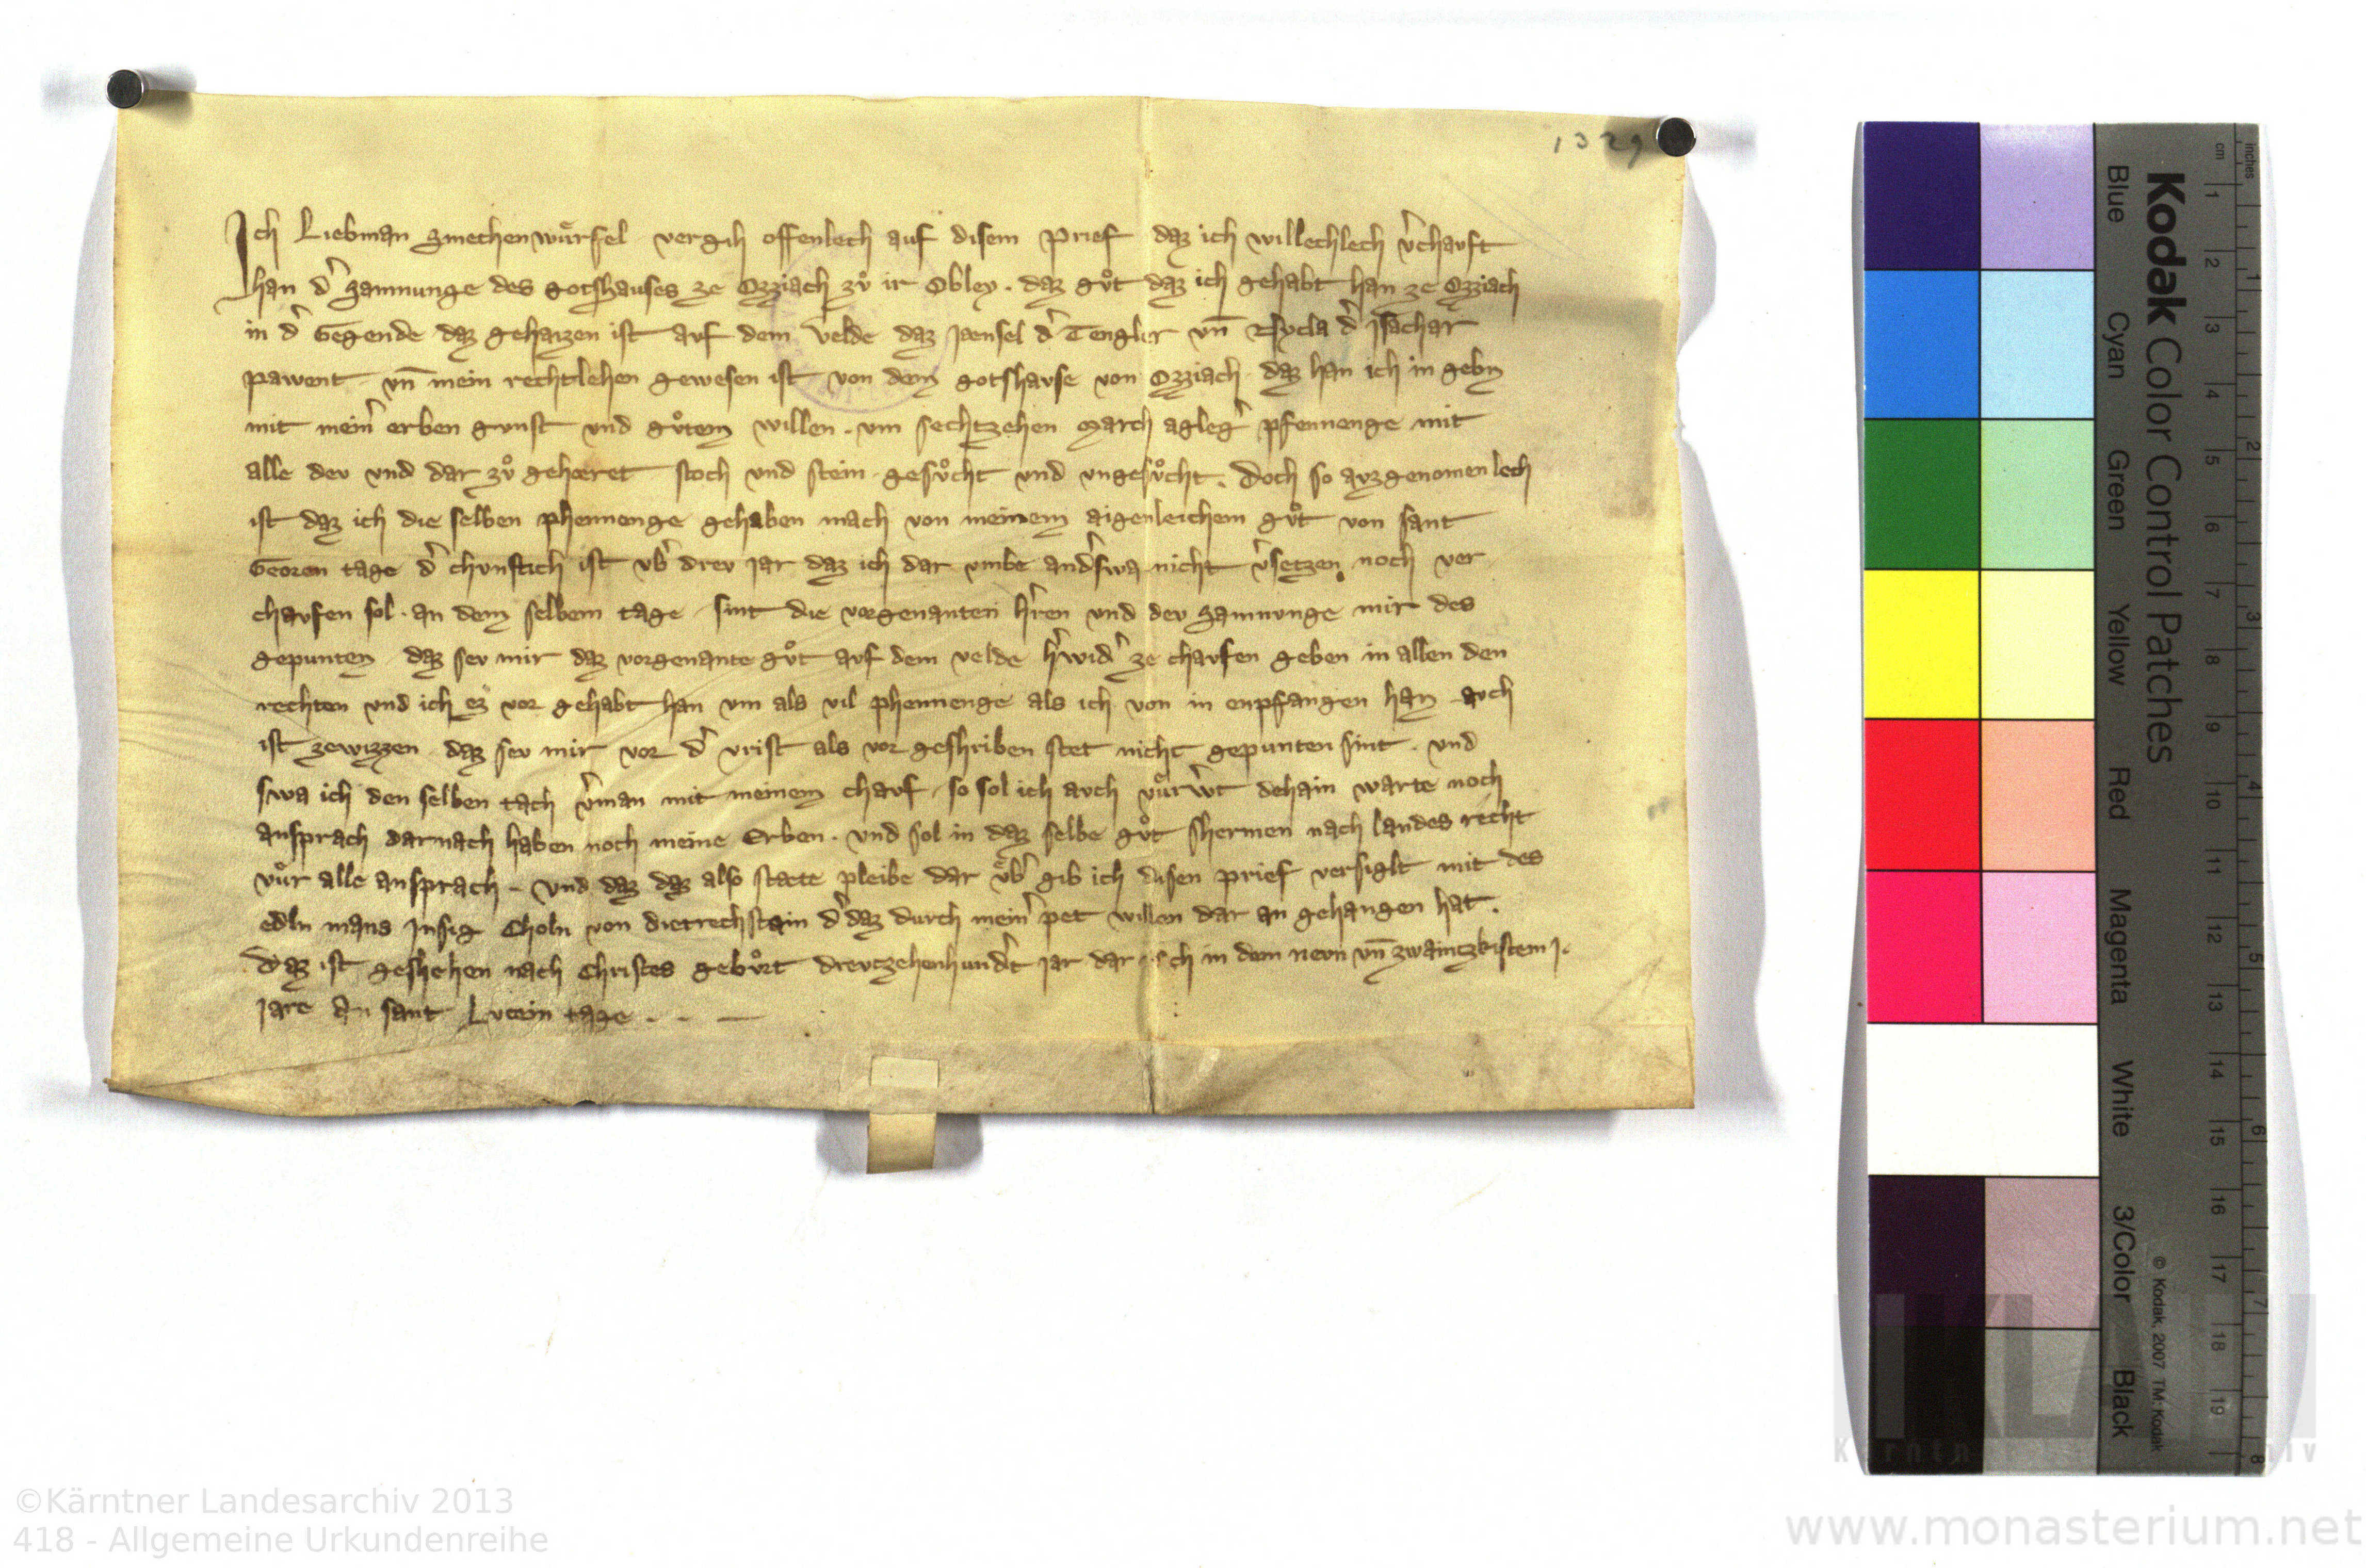 1329
Ich Liebman Smechenwuͤrfel vergih offenlech auf disem prief daz ich willechlech v̉chavft
han d̉ Samnunge des gotshauses ze Ozziach zuͦ ir Obley . daz guͦt daz ich gehabt han ze Ozziach
in d̉ Gegende daz gehaizen ist avf dem velde daz Jaensel d̉ Tengler vn̄ d̉
pawent vn̄ mein rechtlehen gewesen ist von dem gotshavse von Ozziach daz han ich in gebn
mit mein̉ erben gvnst vnd guͦtem willen . vm sechtzehen march agleg̉ pfennenge mit
alle dev vnd dar zuͦ gehoeret stoch vnd stein gesuͦcht vnd vngesuͦcht . Doch so avzgenomenlech
ist daz ich die selben phennenge gehaben mach von meinem aigenleichem guͦt von sant
Georen tage d̉ chvnftich ist vb̉ drev jar daz ich dar vmbe and̉swa nicht v̉setzen noch ver
chavfen sol . an dem selbem tage sint die vorgenanten h̉ren vnd dev Samnvnge mir des
gepunten daz sev mir daz vorgenante guͦt avf dem velde h̉wid̉ ze chavfen geben in allen den
rechten vnd ich ez vor gehabt han vm als vil phennenge als ich von in enpfangen han avch
ist zewizzen daz sev mir vor d̉ vrist als vor geshriben stet nicht gepunten sint . vnd
swa ich den selben tach v̉man mit meinem chavf so sol ich avch vuͤrw̉t dehain warte noch
ansprach darnach haben noch meine Erben . vnd sol in daz selbe guͦt shermen nach landes recht
vuͦr alle ansprach . vnd daz daz also staete pleibe dar vͤb̉ gib ich disen prief versiglt mit des
edln mans Insig Choln von dietrechstain d̉ daz durch mein̉ pet willen dar an gehangen hat .
Daz ist geshehen nach Christes gebuͦrt drevtzehenhund̉t jar dar nach in dem nevn vn̄ zwaintzkistem J.
jare an sant Lucein tage . . —
Kodak Color Control Patches
Blue Cyan Green Yellow Red Magenta White 3/Color Black
© Kodak, 2007 TM: Kodak
cm 1 2 3 4 5 6 7 8 9 10 11 12 13 14 15 16 17 18 19
inches 1 2 3 4 5 6 7 8
KLA
Kärntner Landesarchiv
©Kärntner Landesarchiv 2013
418 - Allgemeine Urkundenreihe
www.monasterium.net